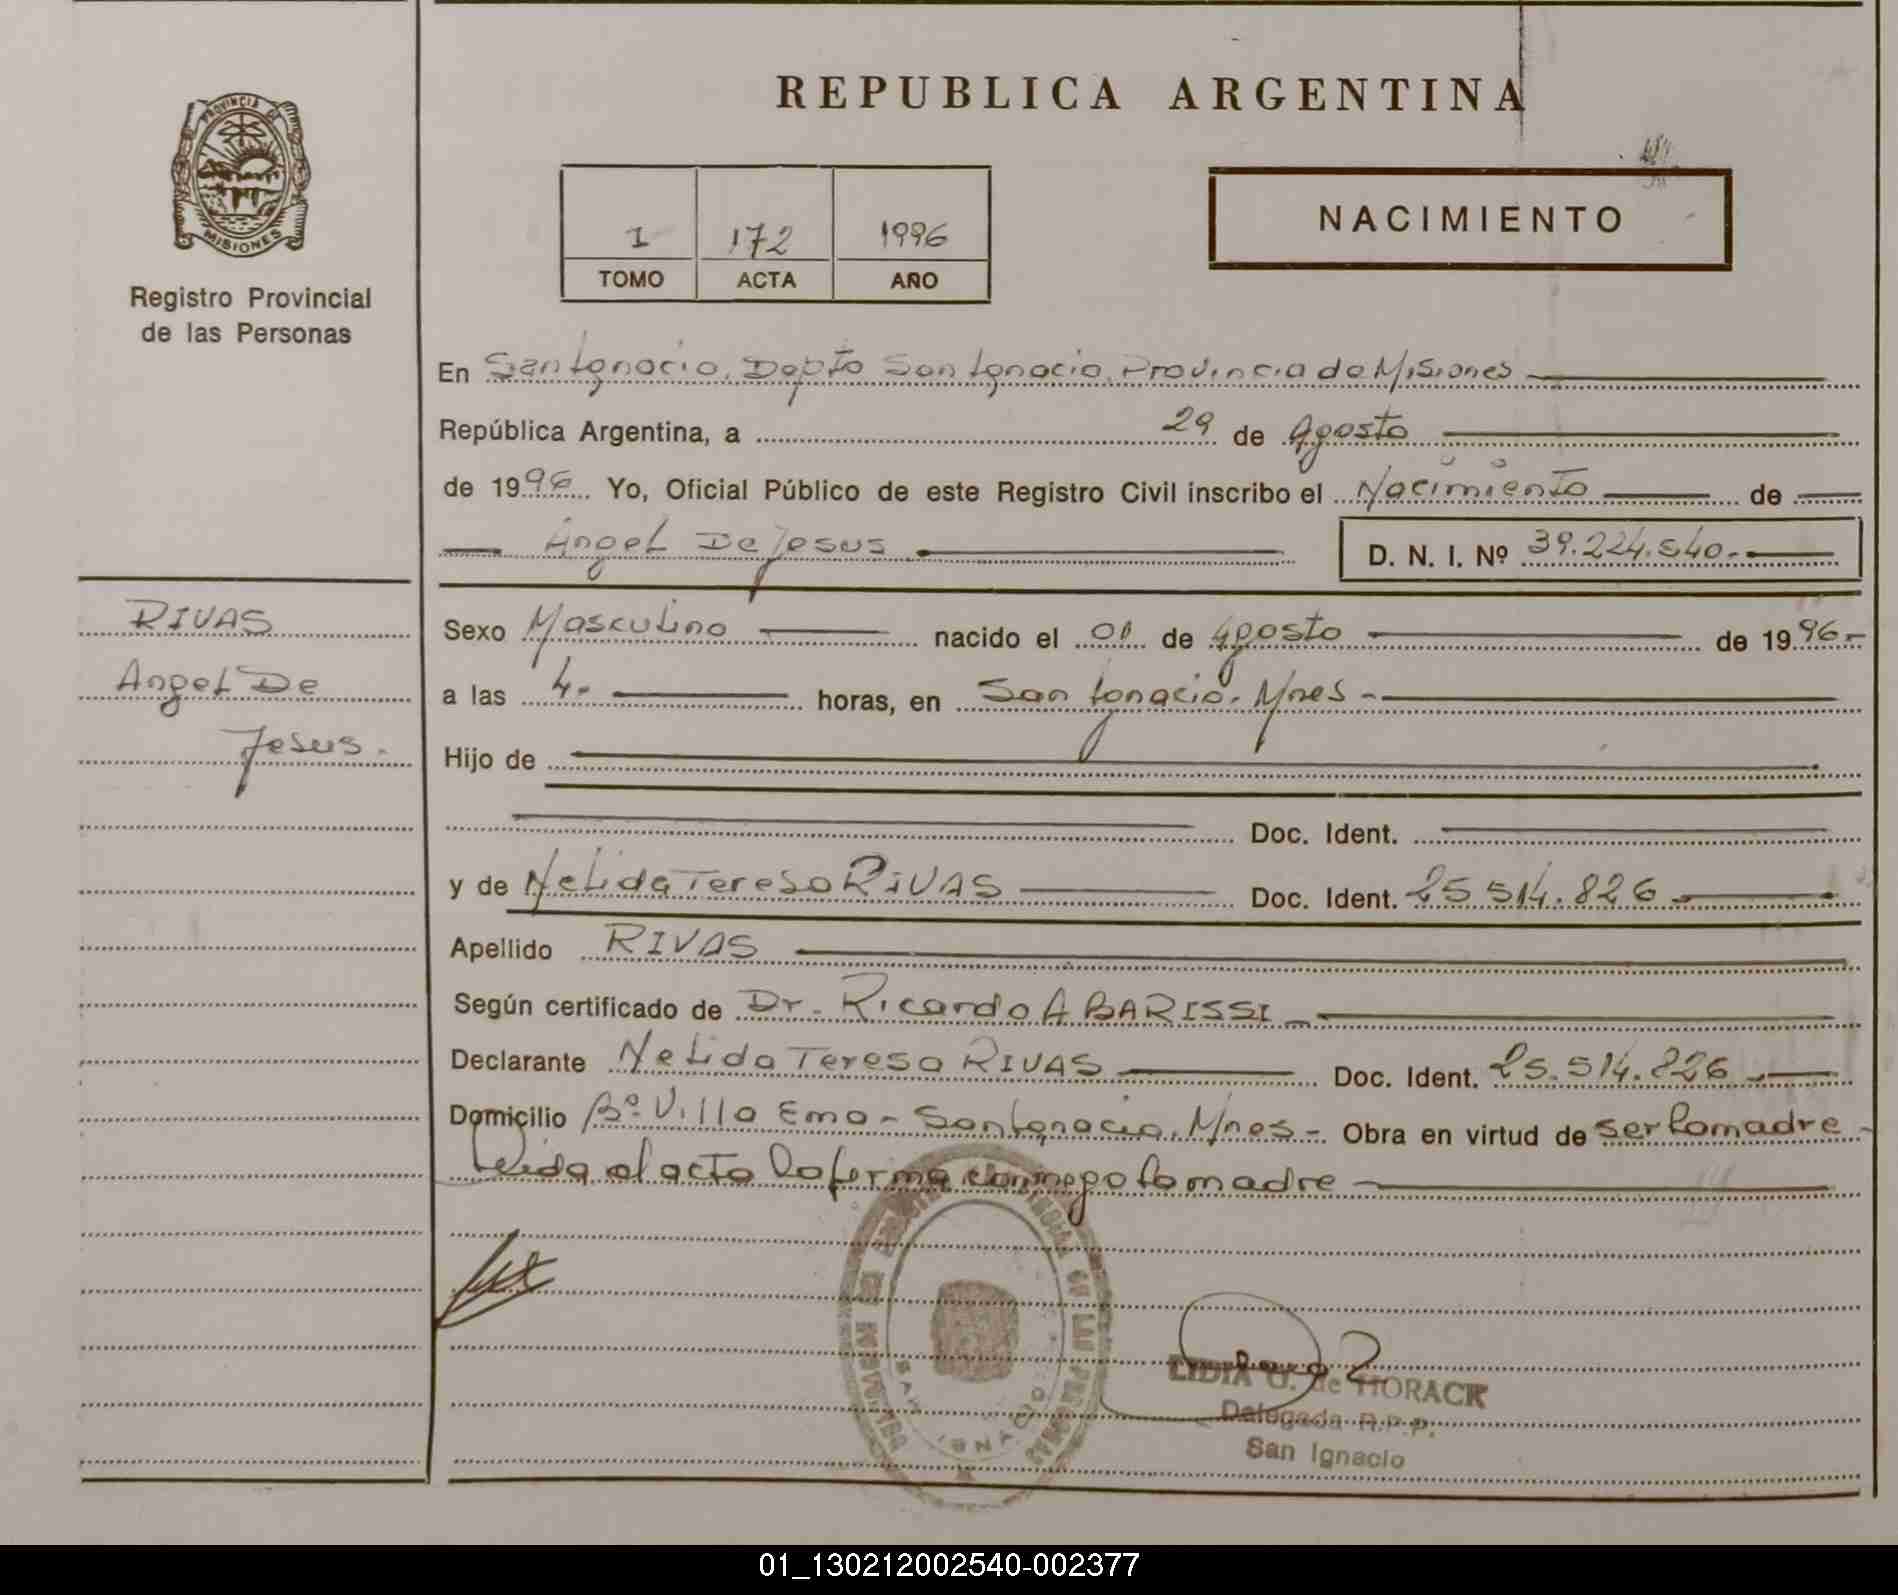 REPUBLICA ARGENTINA
PROVINCIA DE
MISIONES
Registro Provincial
de las Personas
1 172 1996
TOMO ACTA AÑO
NACIMIENTO
En San Ignacio, Depto San Ignacio, Provincia de Misiones
República Argentina, a 29 de Agosto
de 1996 Yo, Oficial Público de este Registro Civil inscribo el Nacimiento de
Angel De Jesus D. N. I. Nº 39.224.540.-
RIVAS
Angel De
Jesus.
Sexo Masculino nacido el 01 de Agosto de 1996.-
a las 4.- horas, en San Ignacio. Mnes -
Hijo de
Doc. Ident.
y de Nelida Teresa RIVAS Doc. Ident. 25 514.826
Apellido RIVAS
Según certificado de Dr. Ricardo A BARISSI
Declarante Nelida Teresa RIVAS Doc. Ident. 25.514.826
Domicilio Bº. Villa Ema - San Ignacio, Mnes - Obra en virtud de ser la madre -
Leida el acta la firma conmigo la madre
SAN IGNACIO
LIDIA G. de HORACK
Delegada R.P.P.
San Ignacio
01_130212002540-002377